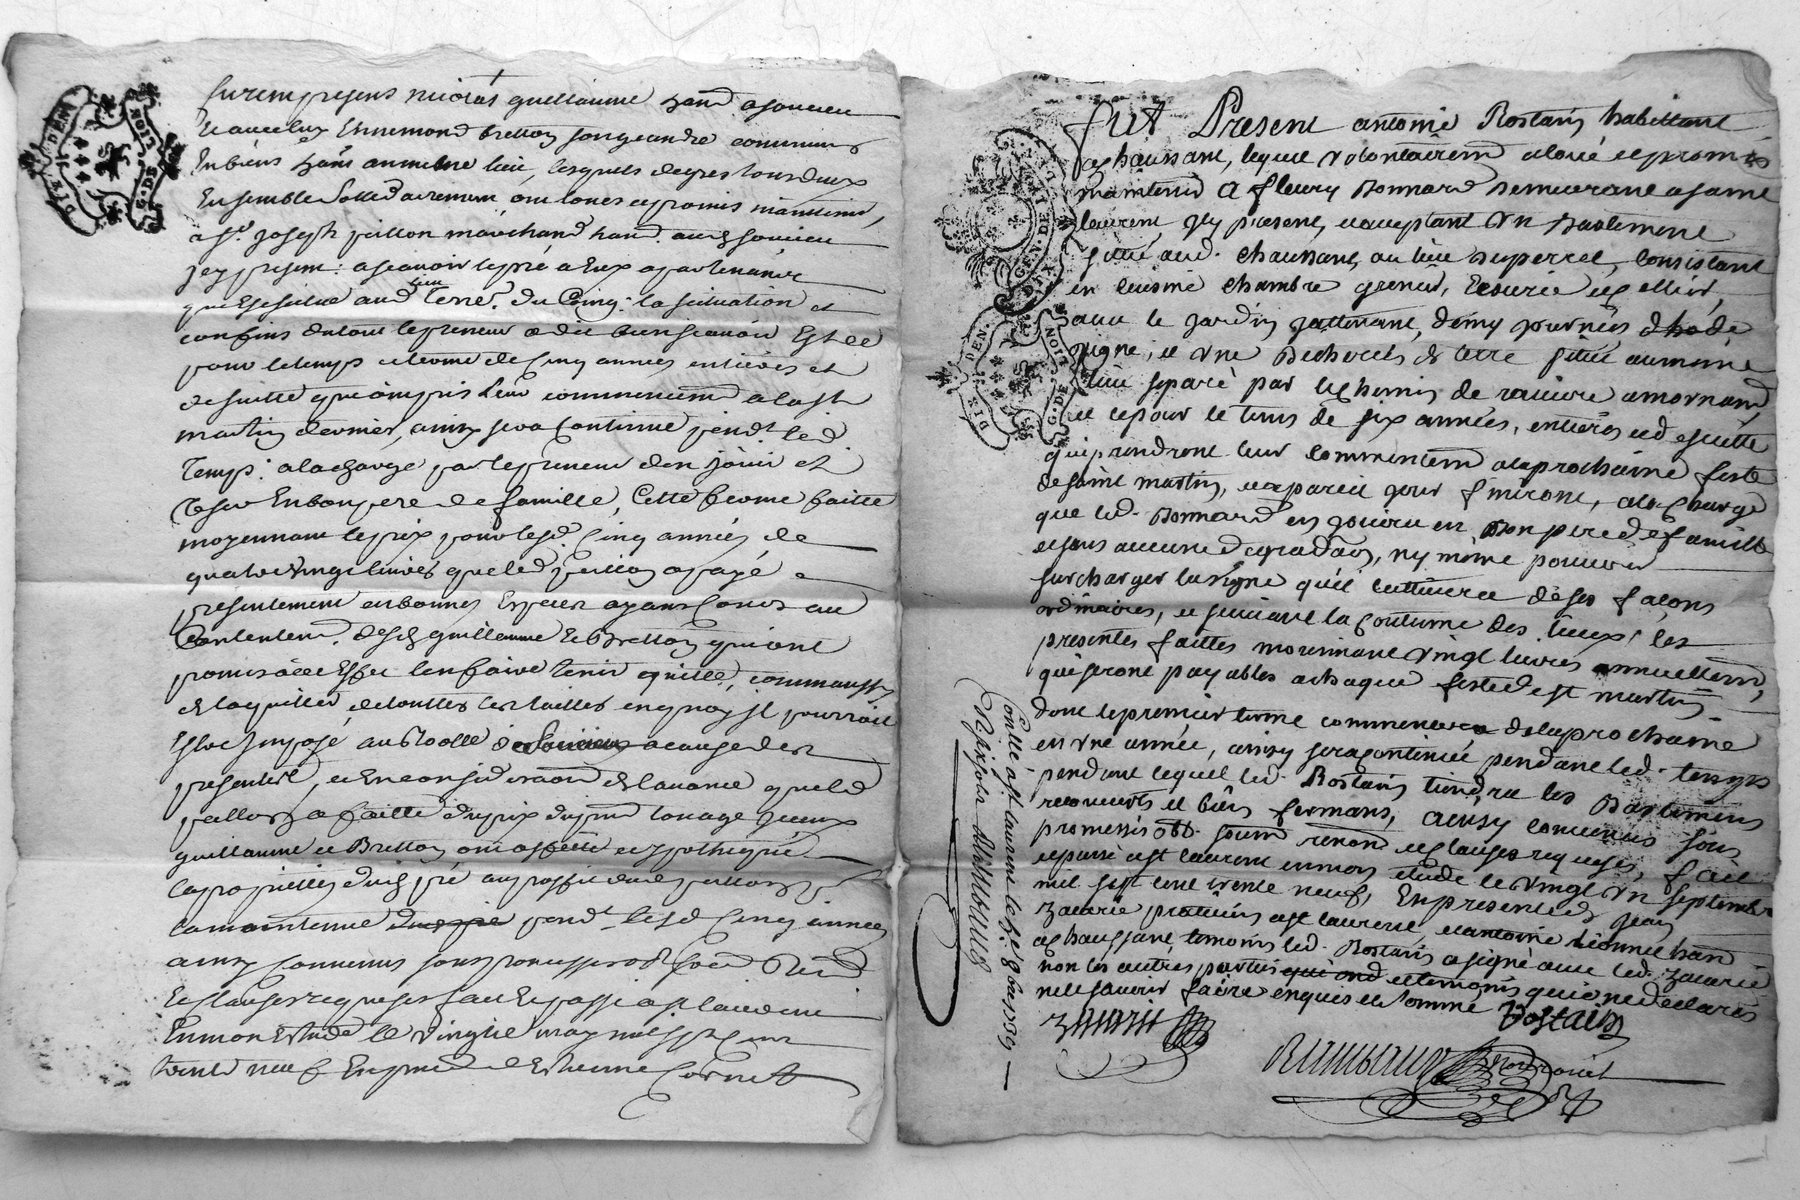 GEN. DE LION
DIX. DEN.
furent presens nicolas guillaume hand. a soucieu
Et avec luy Ennemond bretton
En biens hans au mesme lieu, lesquels de gres tous deux
Ensemble solidairement ont loués et promis maintenir
a sr. joseph paillon marchand hand. aud. soucieu
jcy present: a scavoir le pré a Eux apartenants
que Est situé aud. lieu du Cinq: la situation et
confins dutout le preneur a dit bien scavoir Et ce
pour le temps et terme de Cinq années entieres et
de suitte qui ont pris leur commencemt. a la st
martin dernier, ainsy sera continué pendt. led.
temps: a la charge par le preneur d'en jouir et
user En bon pere de famille, Cette ferme faitte
moyennant le prix pour lesd. Cinq années de
quatre vingt livres que led. paillon a payé
presentement en bonnes Especes ayans Cours au
Contentemt. desd. guillaume Et Bretton qui ont
promis a cet Effet l'en faire tenir quitte, comm aussy
de l'aquitter de touttes les tailles en quoy il pourroit
Estre Imposé au Roolle de Soucieu a cause des
presentes, et En consideration de l'avance que led.
paillon a faitte du prix du present louage jceux
guillaume et Bretton ont affecté et ypothequé
la proprietté dud. pré au proffit dud. paillon
la maintenue pendt. lesd. Cinq années
ainsy Convenus sous promesses obt. soum. Renon.
Et Clauses requises fait Et passé a st laurent
En mon Estude le vingtie may mil sept Cent
trente neuf En presence d'Estienne Cornet
GEN. DE LION
DIX DEN.
G. DE LION
DIX. DEN.
fut Present antoine Rostain habittant
a chaussant, lequel volontairemt. a loué et promis
maintenir a fleury Bonnard demeurant a saint
laurent jcy present, et acceptant Un Bastiment
situé aud. chaussant, au lieu du perret, consistant
en cuisine chambre grenier, Ecurie et cellier,
avec le jardin jattenant, demy journée
vigne, et Une Bicherée de terre sittué au même
lieu separé par le chemin de raviere a mornant,
et ce pour le tems de six années, entieres et de suitte
qui prendront leur commencemt. a la prochaine feste
de saint martin, et a pareil jour finiront, a la charge
que led. Bonnard en jouira en Bon pere de famille
et sans aucune degradaon, ny même pouvoir
surcharger la vigne qu'il cultivera de ses façons
ordinaires, et suivant la coutume des lieux; les
presentes faittes moiennant vingt livres annuellemt.
qui seront payables a chaque feste de st martin
dont le premier terme commencera de la prochaine
en Une année, ainsy sera continué pendant led. temps
pendant lequel led. Rostain tiendra les Bastimens
recouverts et bien fermans, ainsy convenus sous
promesses obt. soum. renon. et clauses requises, fait
et passé a st laurent en mon etude le vingt Un septembre
mil sept cent trente neuf, En presence de Jean
Zacarie praticien a st laurent, et antoine
a chaussant, temoins led. Rostain a signé avec led. Zacarie
non les autres parties et temoins qui ont declarés
ne le savoir faire enquis et sommé
Zacarie
Rostain
Rambaud
Conllé a st laurent le 8bre 1739